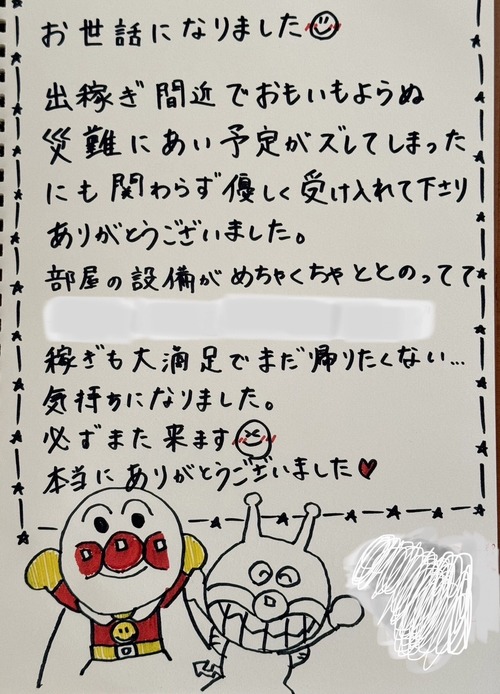 お世話になりました
出稼ぎ間近でおもいもよらぬ
災難にあい予定がズレてしまった
にも関わらず優しく受け入れて下さり
ありがとうございました。
部屋の設備がめちゃくちゃととのってて
稼ぎも大満足でまだ帰りたくない…
気持ちになりました。
必ずまた来ます
本当にありがとうございました